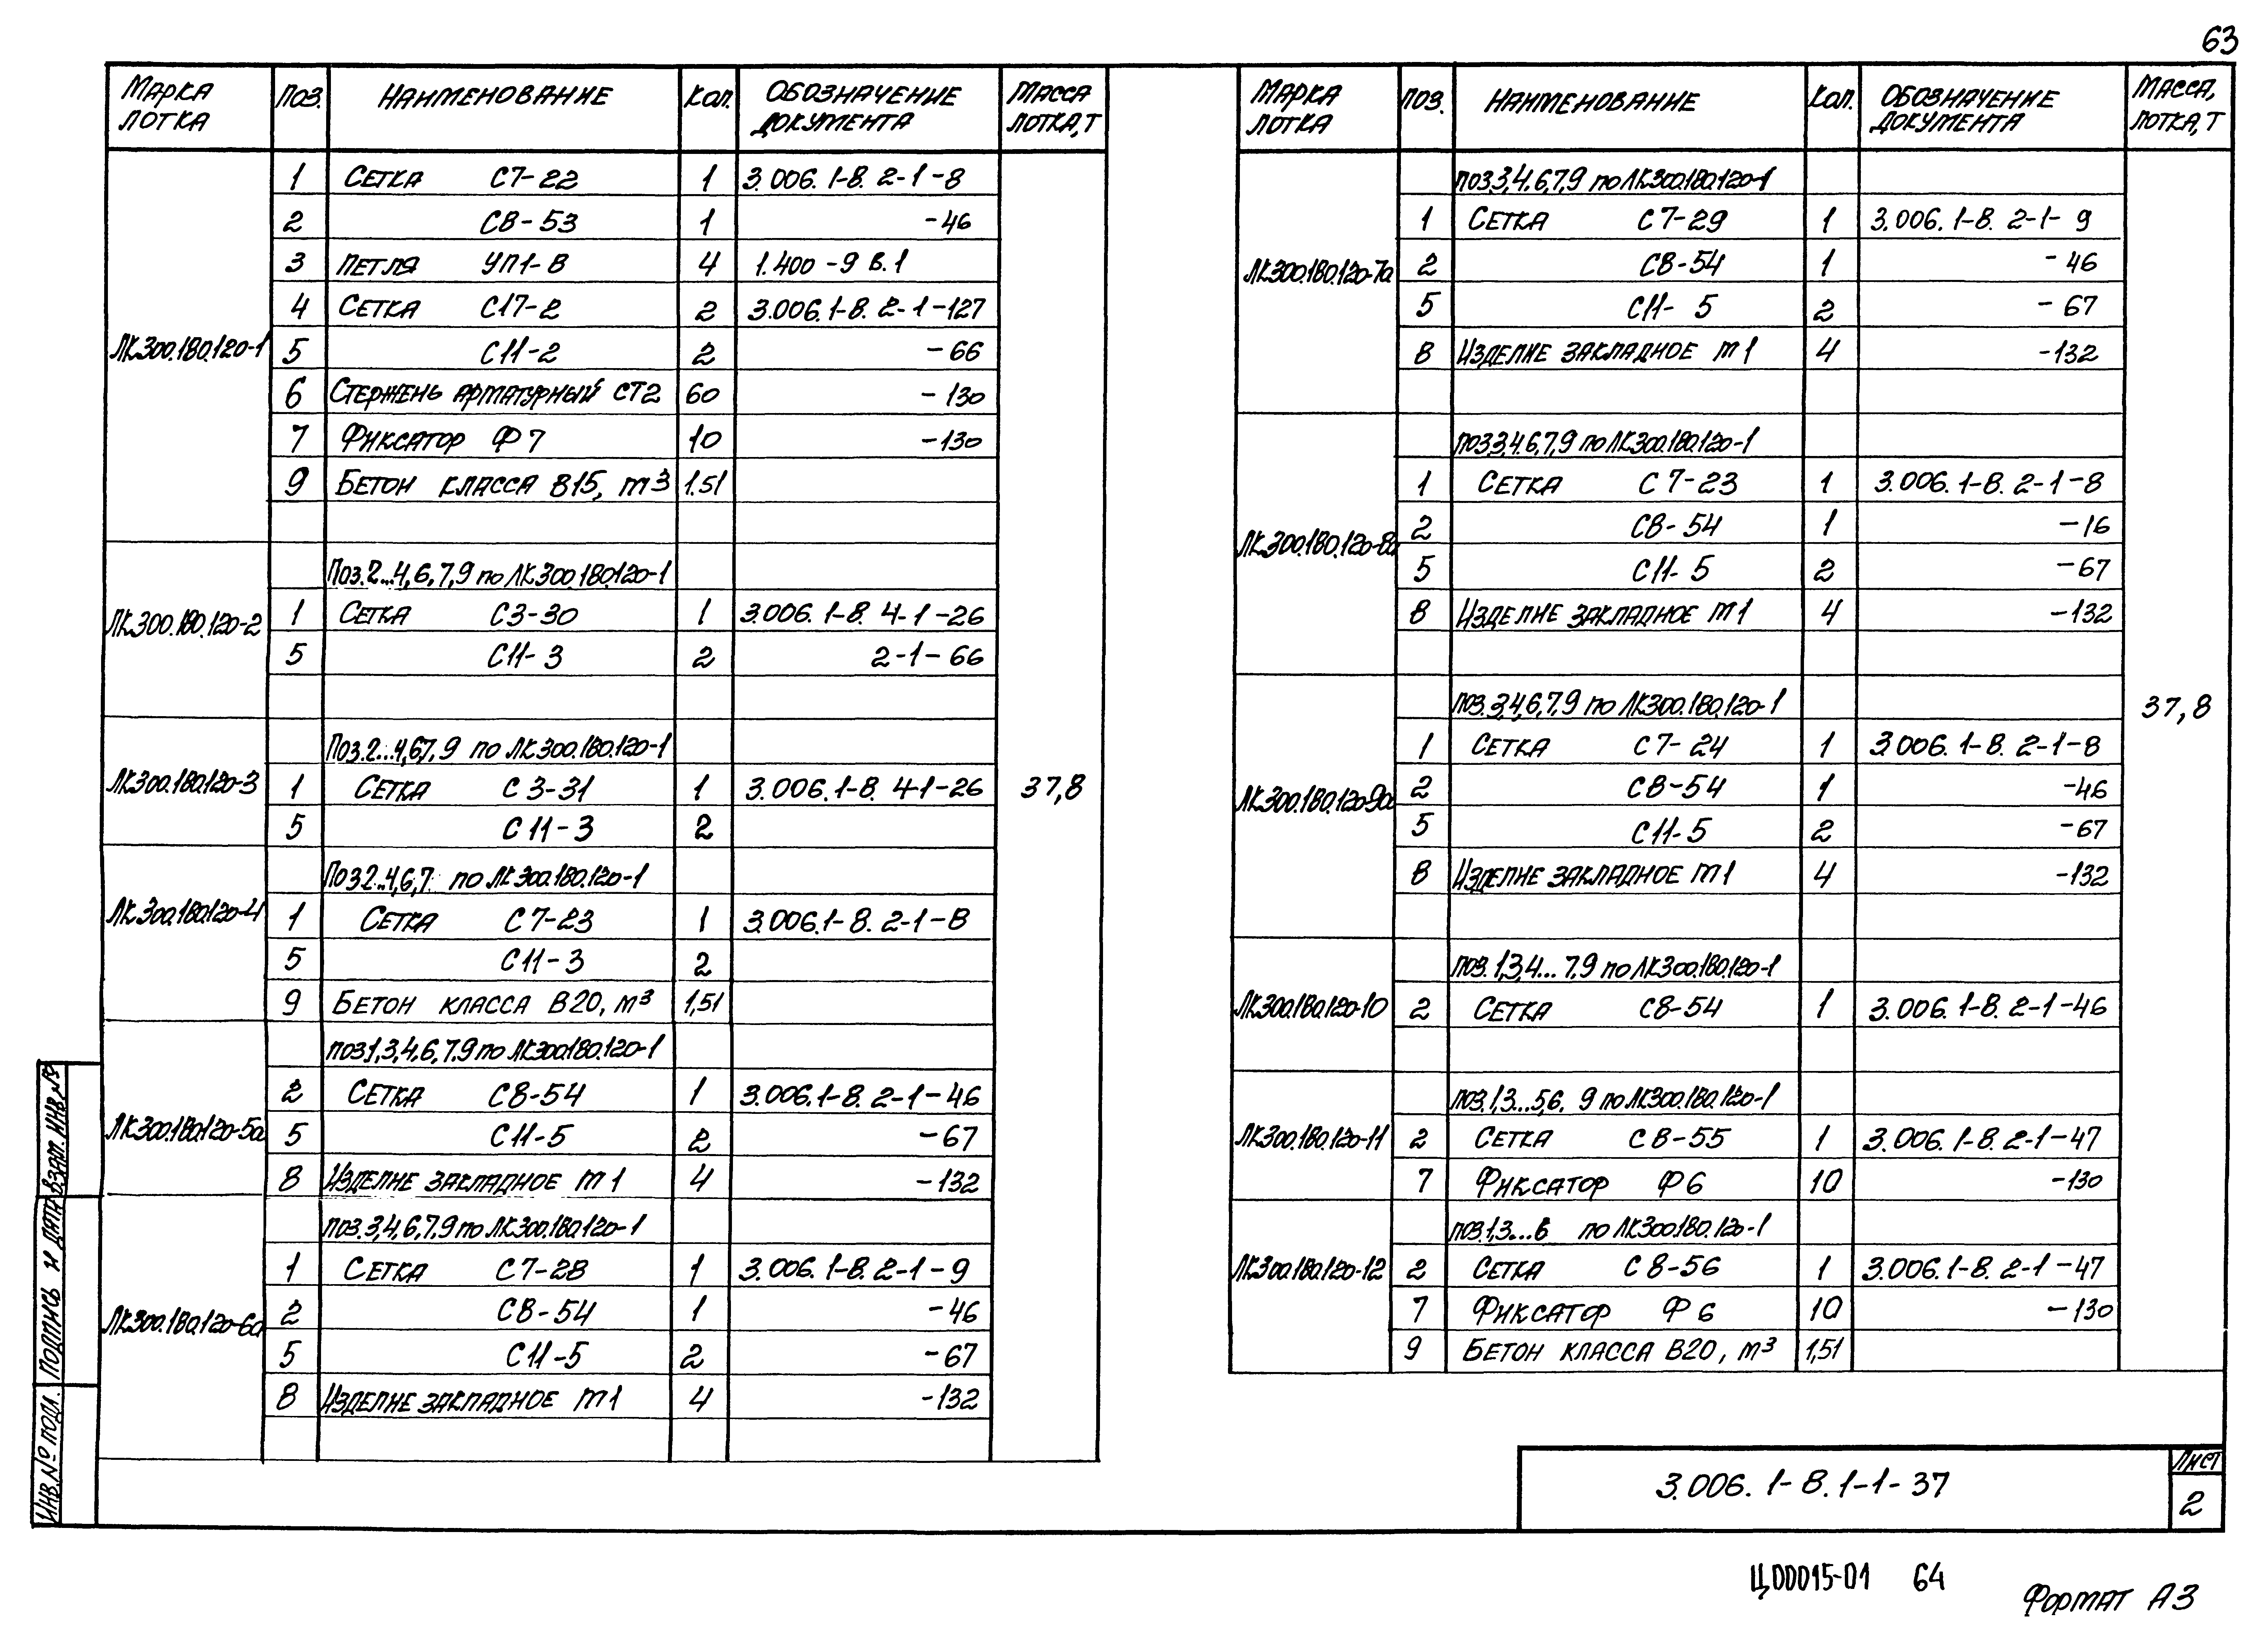 63
Марка лотка Поз. Наименование Кол. Обозначение документа Масса лотка, т
ЛК300.180.120-1
1 Сетка С7-22 1 3.006.1-8.2-1-8
2 С8-53 1 -46
3 Петля УП1-8 4 1.400-9 В.1
4 Сетка С17-2 2 3.006.1-8.2-1-127
5 С11-2 2 -66
6 Стержень арматурный СТ2 60 -130
7 Фиксатор Ф7 10 -130
9 Бетон класса В15, м³ 1.51
ЛК300.180.120-2
Поз.2...4,6,7,9 по ЛК300.180.120-1
1 Сетка С3-30 1 3.006.1-8.4-1-26
5 С11-3 2 2-1-66
ЛК300.180.120-3
Поз.2...4,67,9 по ЛК300.180.120-1
1 Сетка С3-31 1 3.006.1-8.4-1-26
5 С11-3 2
37,8
ЛК300.180.120-4
Поз2..4,6,7. по ЛК300.180.120-1
1 Сетка С7-23 1 3.006.1-8.2-1-8
5 С11-3 2
9 Бетон класса В20, м³ 1,51
ЛК300.180.120-5а
поз.1,3,4,6,7,9 по ЛК300.180.120-1
2 Сетка С8-54 1 3.006.1-8.2-1-46
5 С11-5 2 -67
8 Изделие закладное М1 4 -132
ЛК300.180.120-6а
поз.3,4,6,7,9 по ЛК300.180.120-1
1 Сетка С7-28 1 3.006.1-8.2-1-9
2 С8-54 1 -46
5 С11-5 2 -67
8 Изделие закладное М1 4 -132
Марка лотка Поз. Наименование Кол. Обозначение документа Масса, лотка, т
ЛК300.180.120-7а
поз.3,4,6,7,9 по ЛК300.180.120-1
1 Сетка С7-29 1 3.006.1-8.2-1-9
2 С8-54 1 -46
5 С11-5 2 -67
8 Изделие закладное М1 4 -132
ЛК300.180.120-8а
поз.3,4,6,7,9 по ЛК300.180.120-1
1 Сетка С7-23 1 3.006.1-8.2-1-8
2 С8-54 1 -16
5 С11-5 2 -67
8 Изделие закладное М1 4 -132
ЛК300.180.120-9а
поз.3,4,6,7,9 по ЛК300.180.120-1
37,8
1 Сетка С7-24 1 3.006.1-8.2-1-8
2 С8-54 1 -46
5 С11-5 2 -67
8 Изделие закладное М1 4 -132
ЛК300.180.120-10
поз.1,3,4...7,9 по ЛК300.180.120-1
2 Сетка С8-54 1 3.006.1-8.2-1-46
ЛК300.180.120-11
поз.1,3...5,6. 9 по ЛК300.180.120-1
2 Сетка С8-55 1 3.006.1-8.2-1-47
7 Фиксатор Ф6 10 -130
ЛК300.180.120-12
поз.1,3...6 по ЛК300.180.120-1
2 Сетка С8-56 1 3.006.1-8.2-1-47
7 Фиксатор Ф6 10 -130
9 Бетон класса В20, м³ 1,51
Взам. инв №
Подпись и дата
Инв.№ подл.
3.006.1-8.1-1-37
Лист
2
Ц00015-01 64
Формат А3